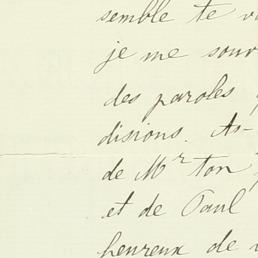 semble te v
je me souv
des paroles
disions. As-
de Mr ton
et de Paul
heureux de v